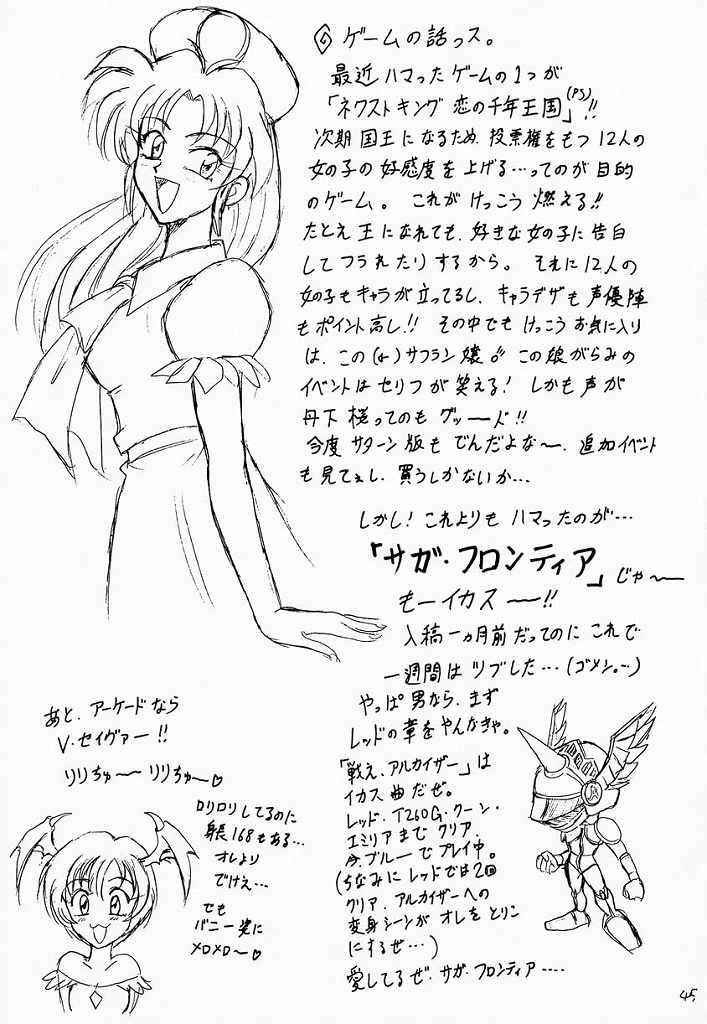 ゲームの話っス。
最近ハマったゲームの1つが
「ネクストキング 恋の千年王国」(PS)!!
次期国王になるため、投票権をもつ12人の
女の子の好感度を上げる…ってのが目的
のゲーム。 これがけっこう燃える!!
たとえ王になれても、好きな女の子に告白
してフラれたりするから。 それに12人の
女の子もキャラが立ってるし、キャラデザも声優陣
もポイント高し!! その中でもけっこうお気に入り
は、この(←)サフラン嬢。 この娘がらみの
イベントはセリフが笑える! しかも声が
丹下 桜ってのもグッーード!!
今度サターン版もでんだよな〜、追加イベント
も見てぇし、買うしかないか…
しかし! これよりもハマったのが…
「サガ・フロンティア」じゃ〜
もーイカス〜!!
入稿一ヵ月前だってのにこれで
一週間はツブした…(ゴメン。…)
やっぱ男なら、まず
レッドの章をやんなきゃ。
「戦え、アルカイザー」は
イカス曲だぜ。
レッド、T260G、クーン、
エミリアまでクリア、
今、ブルーでプレイ中。
(ちなみにレッドでは2回
クリア、アルカイザーへの
変身シーンがオレをとりこ
にするぜ…)
愛してるぜ、サガ・フロンティア‥‥
あと、アーケードなら
V.セイヴァー!!
リリちゅ〜 リリちゅ〜♡
ロリロリしてるのに
身長168もある…
オレより
でけえ…
でも
バニー姿に
メロメロ〜♡
45.